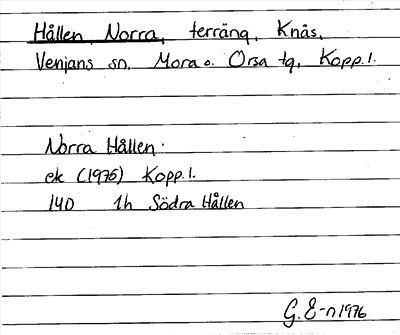 Hållen, Norra, terräng, Knås,
Venjans sn. Mora o. Orsa tg, Kopp.l.
Norra Hållen.
ek (1976) Kopp.l.
140 1h Södra Hållen
G. E-n 1976